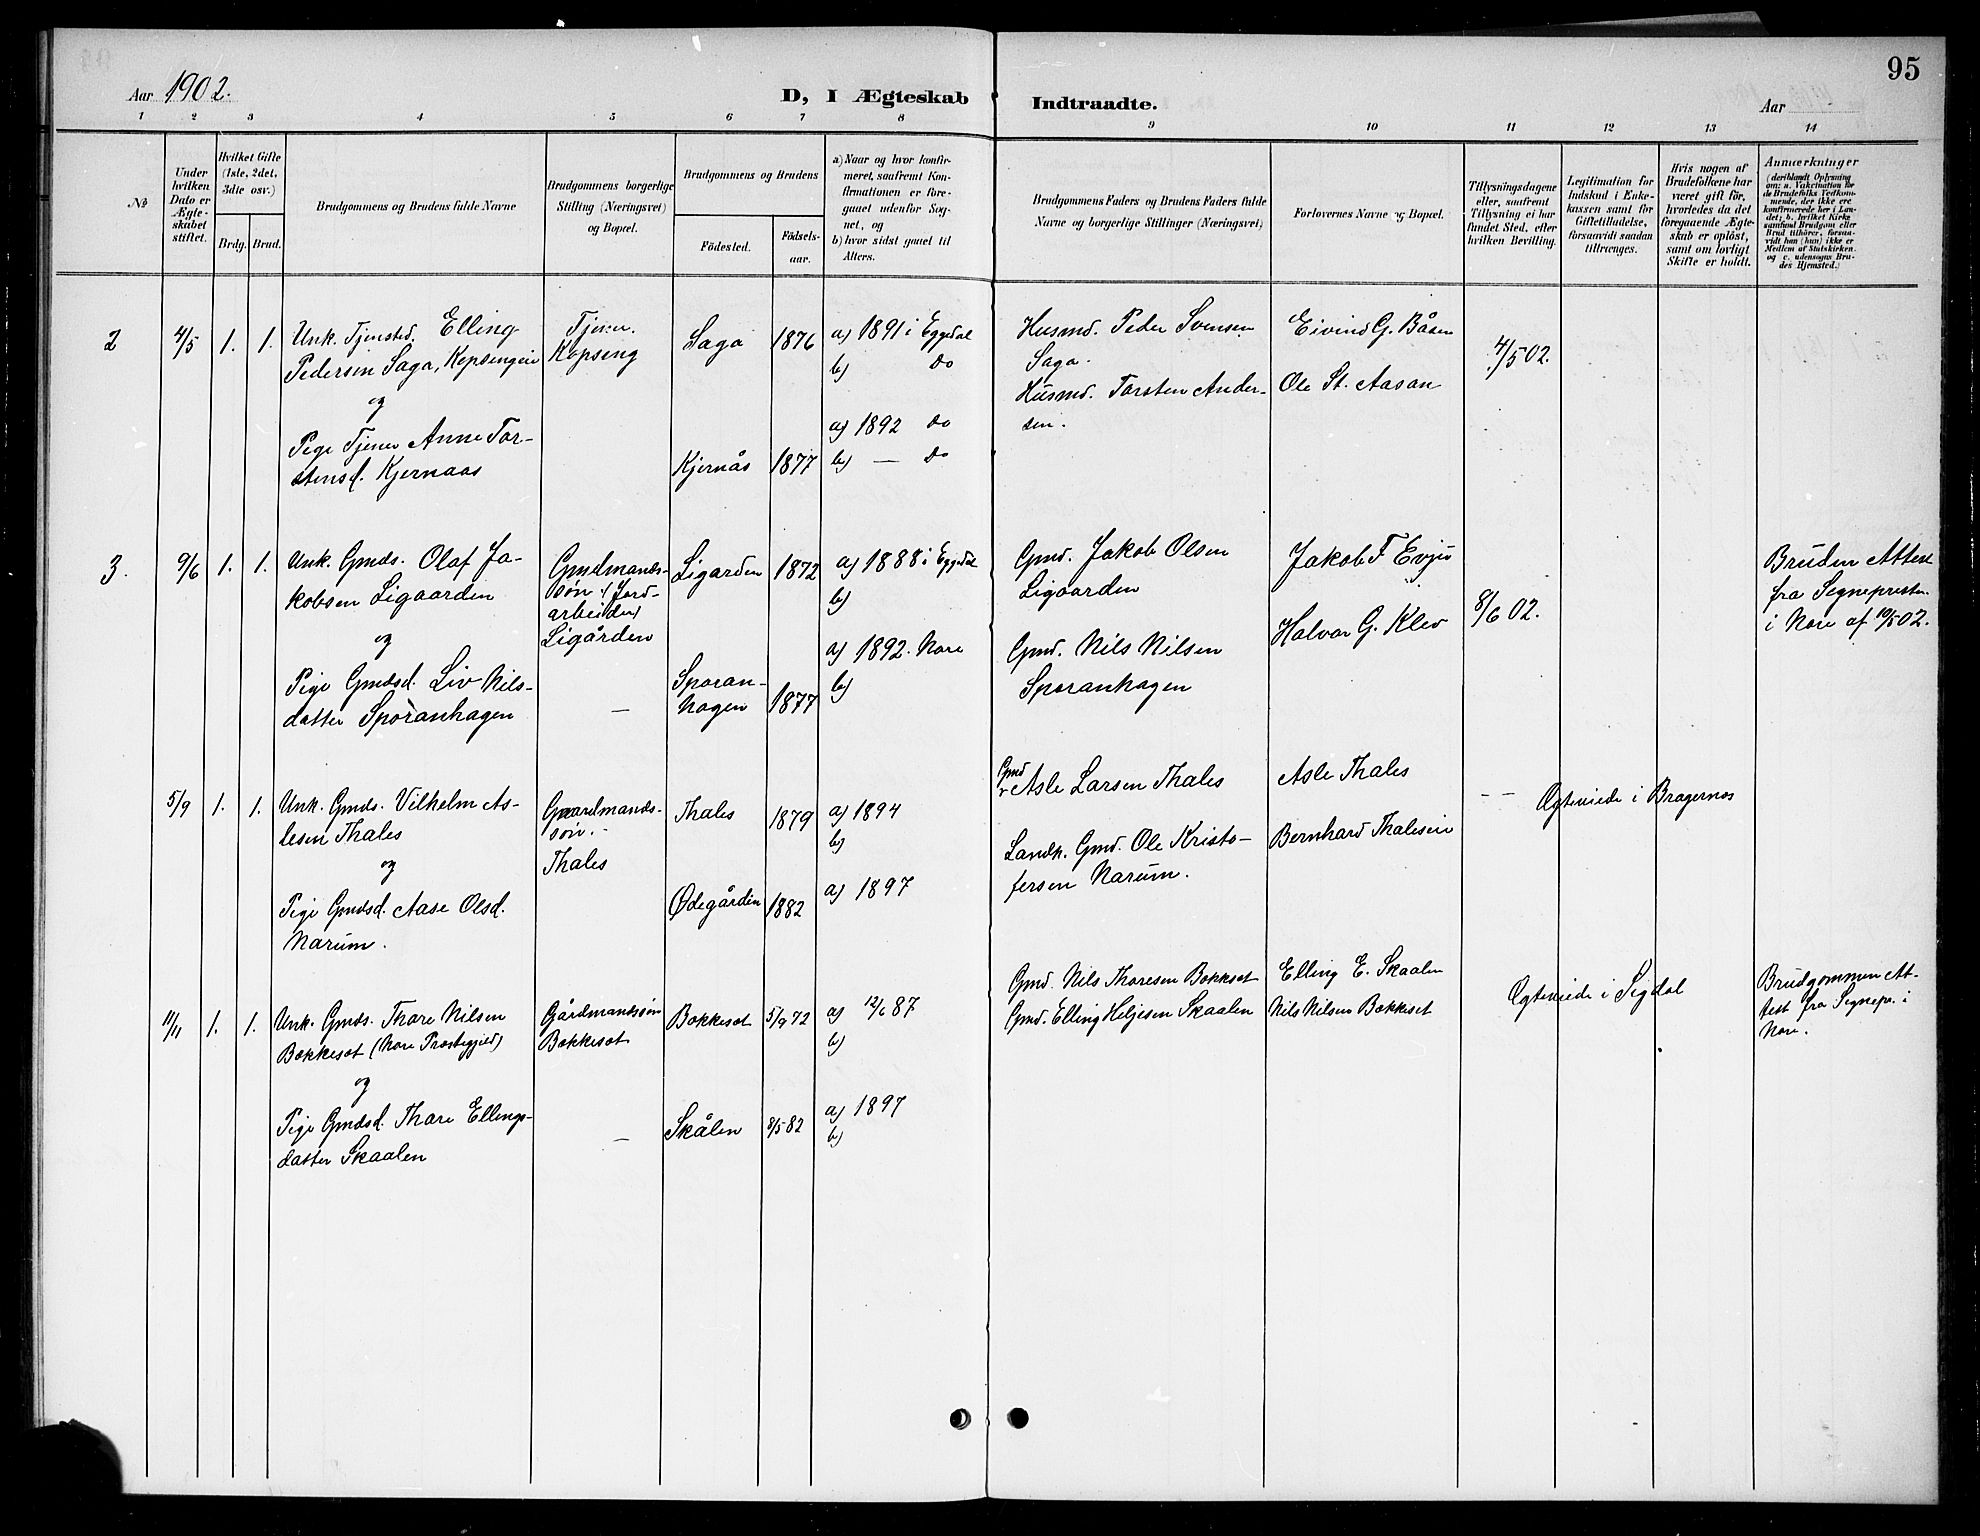 95
Aar 1902.
D, I Ægteskab Indtraadte.
Aar
1 2 3 4 5 6 7 8 9 10 11 12 13 14
No
Under hvilken Dato er Ægte-skabet stiftet.
Hvilket Gifte (1ste, 2det, 3die osv.)
Brdg. Brud.
Brudgommens og Brudens fulde Navne
Brudgommens borgerlige Stilling (Næringsvei) og Bopæl.
Brudgommens og Brudens
Födested.
Födsels-aar.
a) Naar og hvor konfir-meret, saafremt Kon-firmationen er fore-gaaet udenfor Sog-net, og
b) hvor sidst gaaet til Alters.
Brudgommens Faders og Brudens Faders fulde Navne og borgerlige Stillinger (Næringsvei)
Forlovernes Navne og Bopæl.
Tillysningsdagene eller, saafremt Tillysning ei har fundet Sted, efter hvilken Bevilling.
Legitimation for Indskud i Enke-kassen samt for Giftetilladelse, forsaavidt saadan tiltrænges.
Hvis nogen af Brudefolkene har været gift för, hvorledes da det foregaaende Ægte-skab er oplöst, samt om lovligt Skifte er holdt.
Anmærkninger (deriblandt Oplysning om: a. Vakcination for de Brudefolks Vedkom-mende, der ikke ere konfirmerede her i Lan-det; b. hvilket Kirke-samfund Brudgom eller Brud tilhörer, forsaa-vidt han (hun) ikke er Medlem af Statskirken, og c. udensogns Bru-des Hjemsted.)
2 4/5 1. 1. Unk. Tjenested. Elling
Pedersen Saga, Kopsengeie
og
Pige Tjener Anne Tor-
stensd. Kjernaas
Tjener
Kopseng
Saga 1876
a) 1891 i Eggedal
b) Do
Kjernås 1877
a) 1892 Do
b) — Do
Husmd. Peder Svensen
Saga.
Husmd. Torsten Ander-
sen.
Eivind G. Båsen
Ole St. Aasan
4/5 02.
3. 9/6 1. 1. Unk. Gmds. Olaf Ja-
kobsen Ligaarden
og
Pige Gmdsd. Liv Nils-
datter Sporanhagen
Gmdmands-
søn (Jord-
arbeider)
Ligården
—
Ligarden 1872
a) 1888 i Eggedal
b)
Sporan-
hagen 1877
a) 1892. Nore
b)
Gmd. Jakob Olsen
Ligaarden
Gmd. Nils Nilsen
Sporanhagen
Jakob F Evju
Halvor G. Klev
8/6 02.
Bruden Attest
fra Sognepresten
i Nore af 10/5 02.
5/9 1. 1. Unk. Gmds. Vilhelm As-
lesen Thales
og
Pige Gmdsd. Aase Olsd.
Narum.
Gaardmands-
søn.
Thales
Thales 1879
a) 1894
b)
Ødegården 1882
a) 1897
Gmd
Asle Larsen Thales
Landh. Gmd. Ole Kristo-
fersen Narum.
Asle Thales
Bernhard Thalesein
— — Ægteviede i Bragernes
11/11 1. 1. Unk. Gmds. Thore Nilsen
Bakkesat (Nore Prestegjeld)
og
Pige Gmdsd. Thore Ellings-
datter Skaalen
Gårdmandssøn
Bakkesat
—
Bakkesat 5/9 72
a) 12/6 87
b)
Skålen 8/5 82
a) 1897
b)
Gmd. Nils Thoresen Bakkesat
Gmd. Elling Heljesen Skaalen
Elling E. Skaalen
Nils Nilsen Bakkeset
Ægteviede i Sigdal
Brudgommen At-
test fra Sognepr. i
Nore.